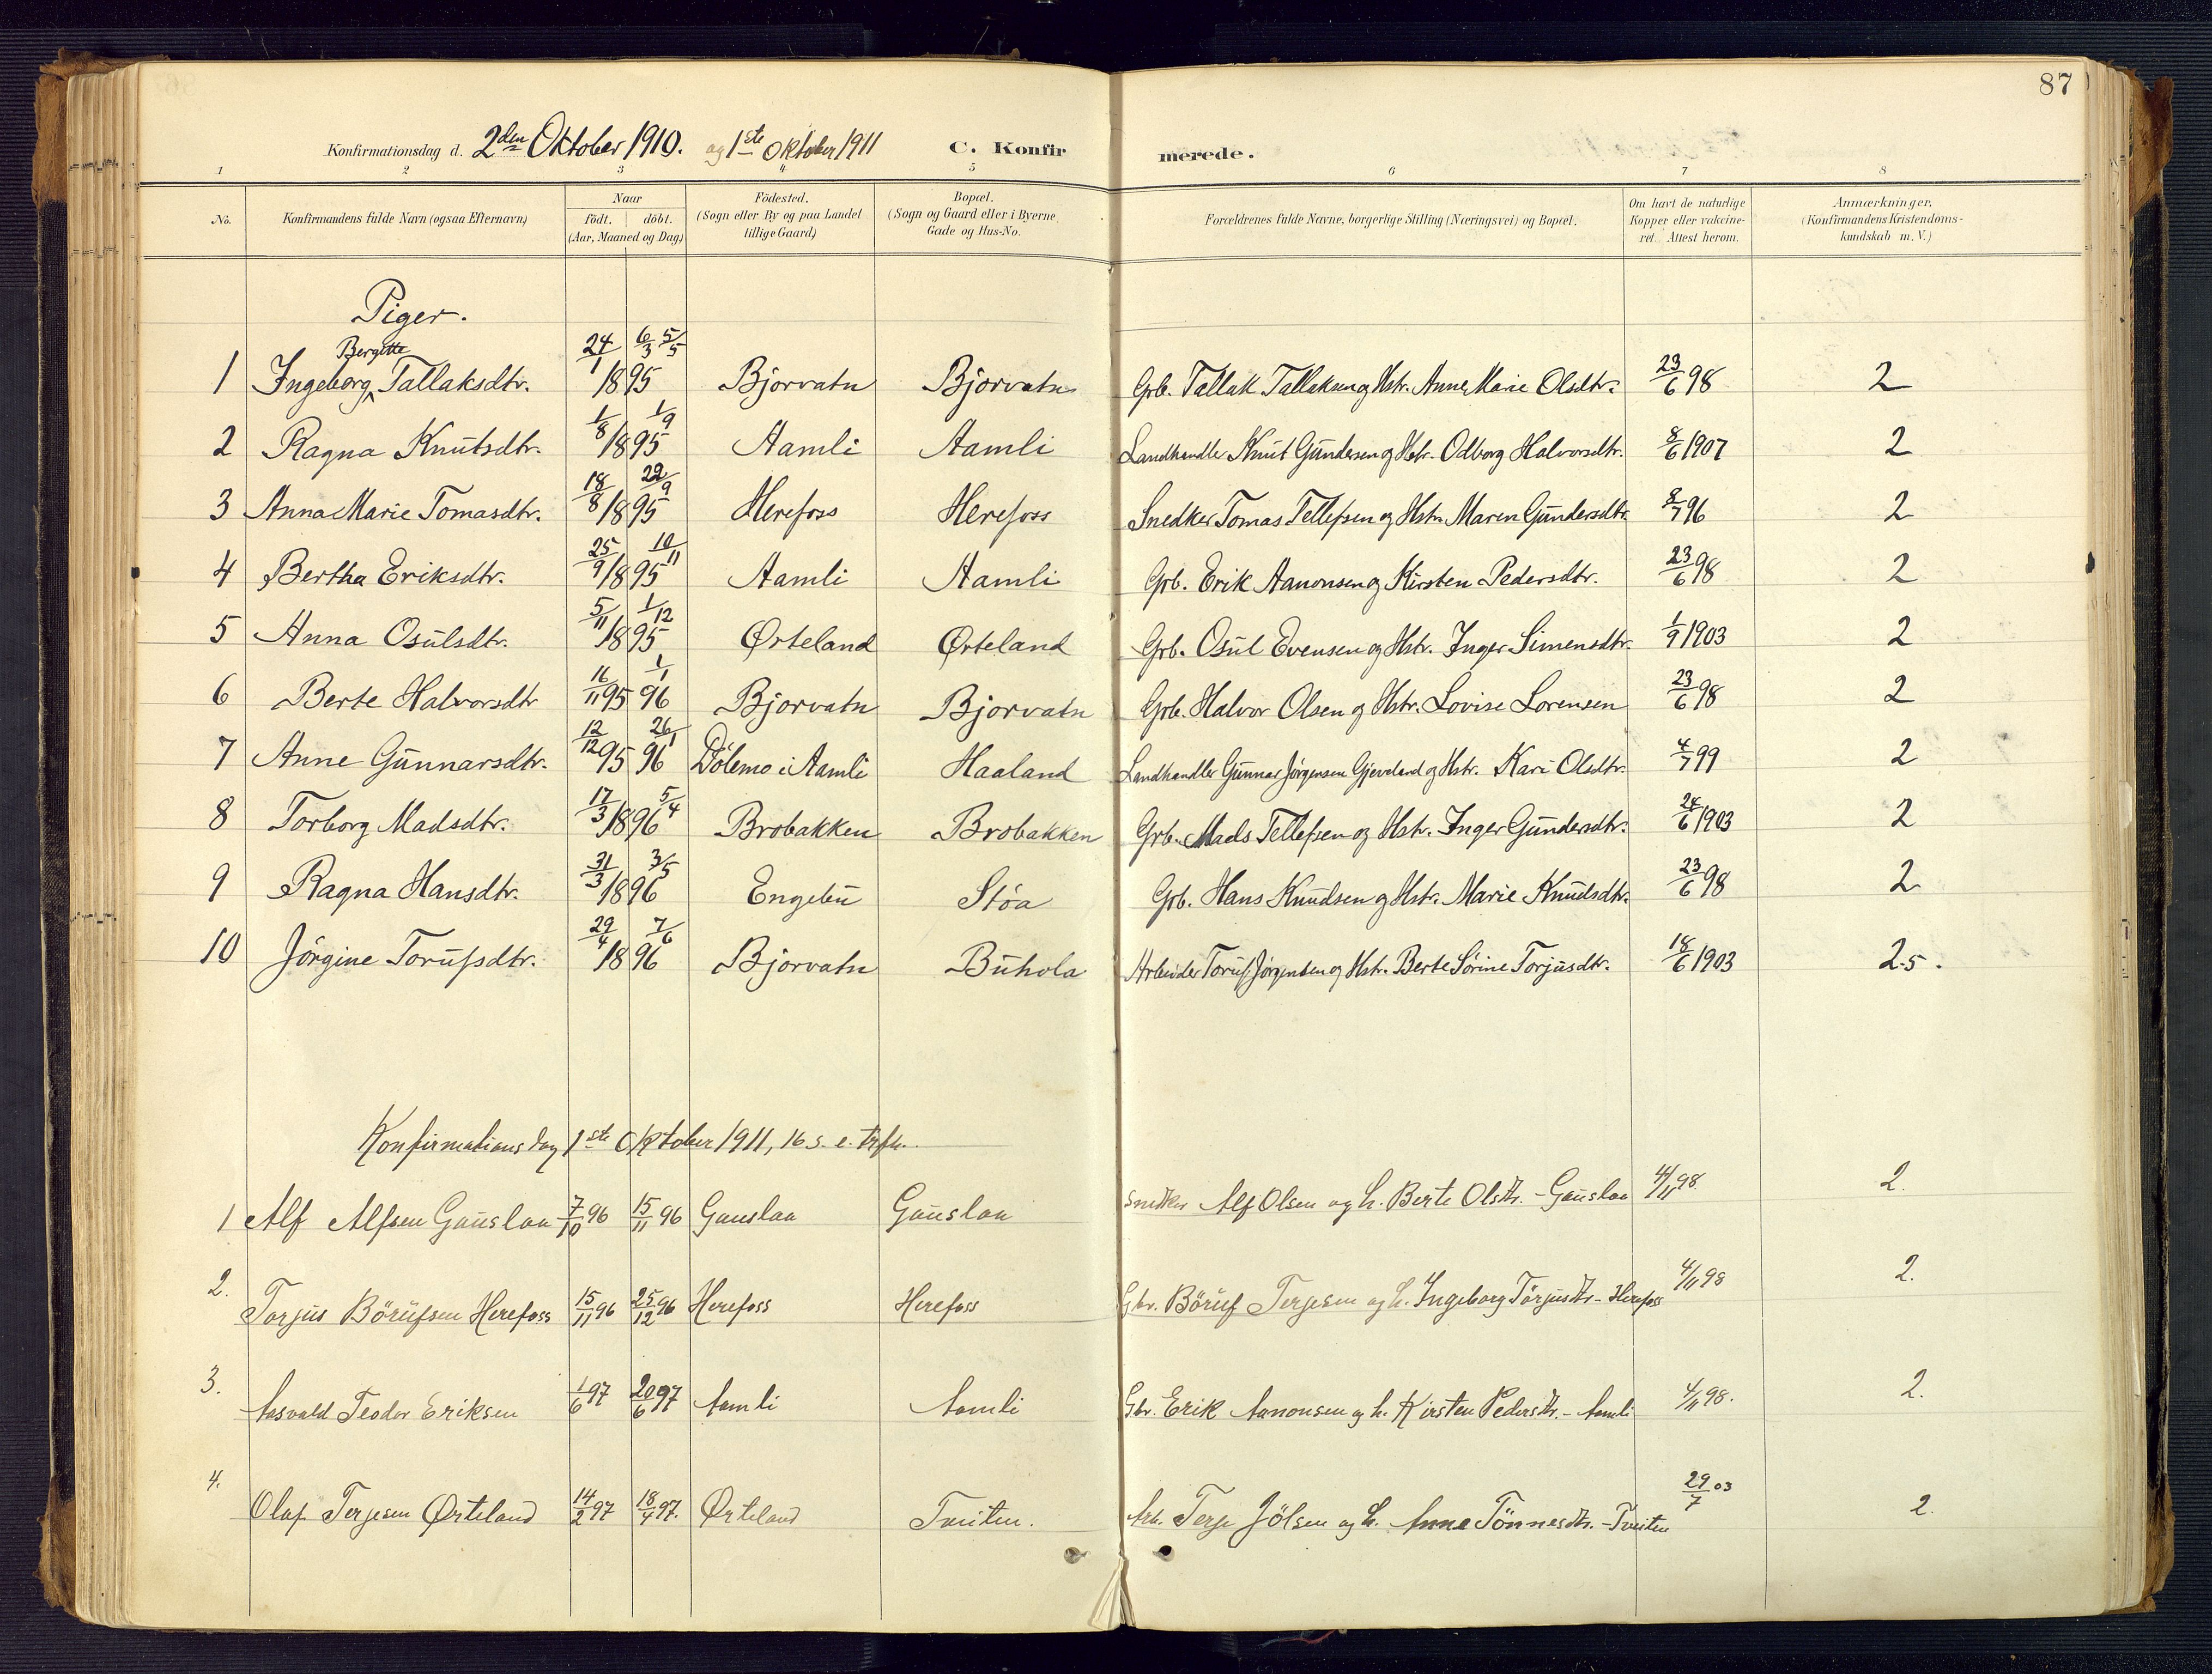 87
Konfirmationsdag d. 2den Oktober 1910. og 1ste Oktober 1911 C. Konfirmerede.
1 2 3 4 5 6 7 8
No. Konfirmandens fulde Navn (ogsaa Efternavn) Naar födt. döbt. (Aar, Maaned og Dag) Födested. (Sogn eller By og paa Landet tillige Gaard) Bopæl. (Sogn og Gaard eller i Byerne Gade og Hus-No. Forældrenes fulde Navne, borgerlige Stilling (Næringsvei) og Bopæl. Om havt de naturlige Kopper eller vakcineret. Attest herom. Anmærkninger. (Konfirmandens Kristendomskundskab m. V.)
Piger.
1 Ingeborg Bergitte Tallaksdtr. 24/1 1895 6/3 5/5 Bjorvatn Bjorvatn Grb. Tallak Tallaksen og Hstr. Anne Marie Olsdtr. 23/6 98 2
2 Ragna Knutsdtr. 1/8 1895 1/9 Aamli Aamli Landhandler Knut Gundersen og Hstr. Odborg Halvorsdtr. 8/6 1907 2
3 Anna Marie Tomasdtr. 18/8 1895 22/9 Herefoss Herefoss Snedker Tomas Tellefsen og Hstr. Maren Gundersdtr. 8/7 96 2
4 Bertha Eriksdtr. 25/9 1895 10/11 Aamli Aamli Grb. Erik Aanonsen og Kirsten Pedersdtr. 23/6 98 2
5 Anna Osulsdtr. 5/11 1895 1/12 Ørteland Ørteland Grb. Osul Evensen og Hstr. Inger Simensdtr. 1/9 1903 2
6 Berte Halvorsdtr 16/11 95 1/1 96 Bjorvatn Bjorvatn Grb. Halvor Olsen og Hstr. Lovise Lorensen 23/6 98 2
7 Anne Gunnarsdtr. 12/12 95 26/1 96 Dölemo i Aamli Haaland Landhandler Gunnar Jörgensen Gjerveland og Hstr. Kari Olsdtr. 4/7 99 2
8 Torborg Madsdtr. 17/3 1896 5/4 Brobakken Brobakken Grb. Mads Tellefsen og Hstr. Inger Gundersdtr. 24/6 1903 2
9 Ragna Hansdtr. 31/3 1896 3/5 Engebu Stöa Grb. Hans Knudsen og Hstr. Marie Knudsdtr. 23/6 98 2
10 Jörgine Torufsdtr. 29/4 1896 7/6 Bjorvatn Buhola Arbeider Toruf Jörgensen og Hstr. Berte Sörine Torjusdtr. 18/6 1903 2.5.
Konfirmationsdag 1ste Oktober 1911, 16 s. e. trefh.
1 Alf Alfsen Gauslaa 7/10 96 15/11 96 Gauslaa Gauslaa Snedker Alf Olsen og h. Berte Olsdtr. - Gauslaa 4/11 98 2.
2. Torjus Börufsen Herefoss 15/11 96 25/12 96 Herefoss Herefoss Gbr. Böruf Terjesen og h. Ingeborg Torjusdtr. - Herefoss 4/11 98 2.
3. Aasvald Teodor Eriksen 1/6 97 20/6 97 Aamli Aamli Gbr. Erik Aanonsen og h. Kirsten Pedersdtr. - Aamli 4/11 98. 2.
4. Olaf Terjesen Ørteland 14/2 97 18/4 97. Ørteland Tveiten. Arb. Terje Jölsen og h. Anne Tönnesdtr. - Tveiten 29/7 03 2.